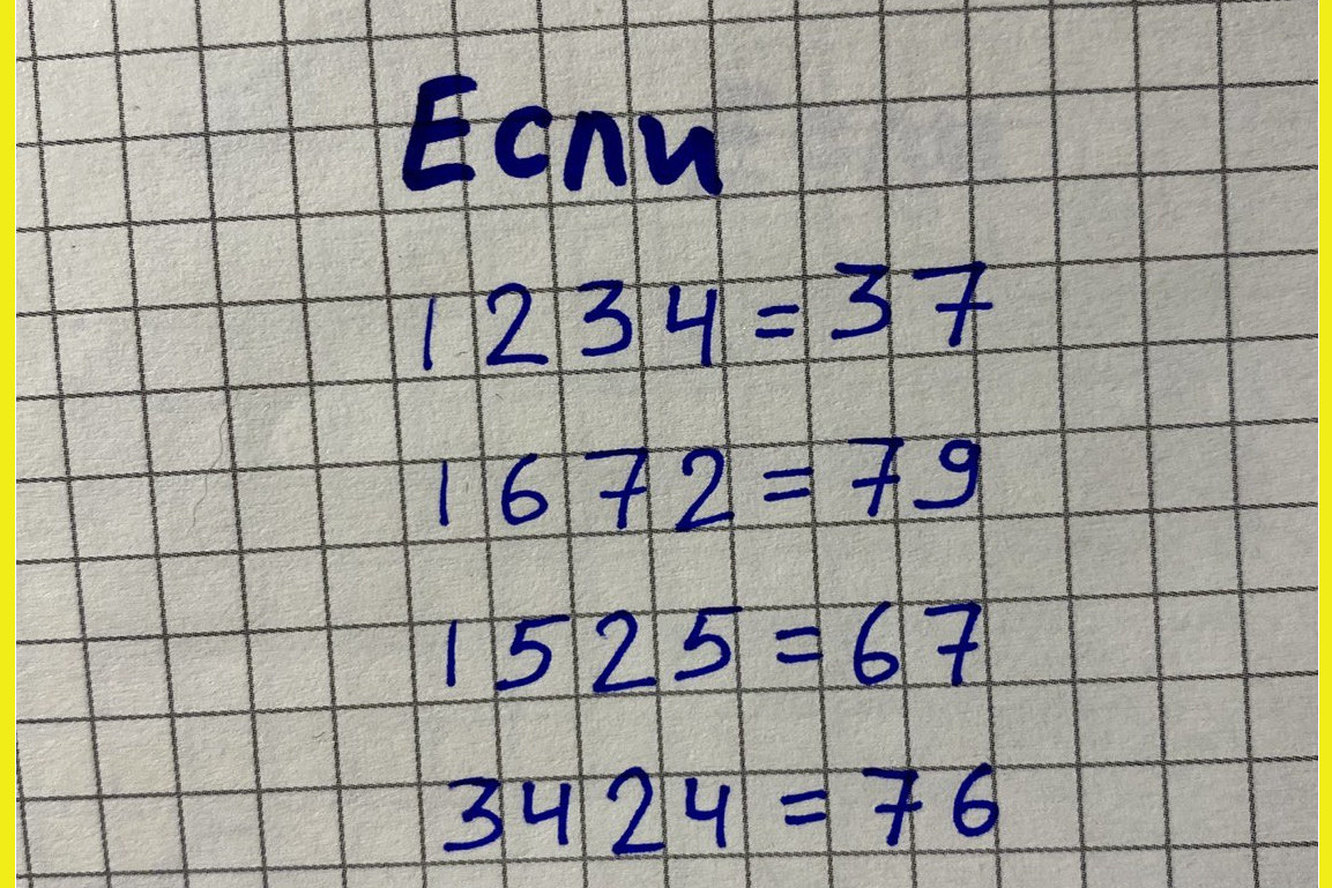 Если
1234=37
1672=79
1525=67
3424=76